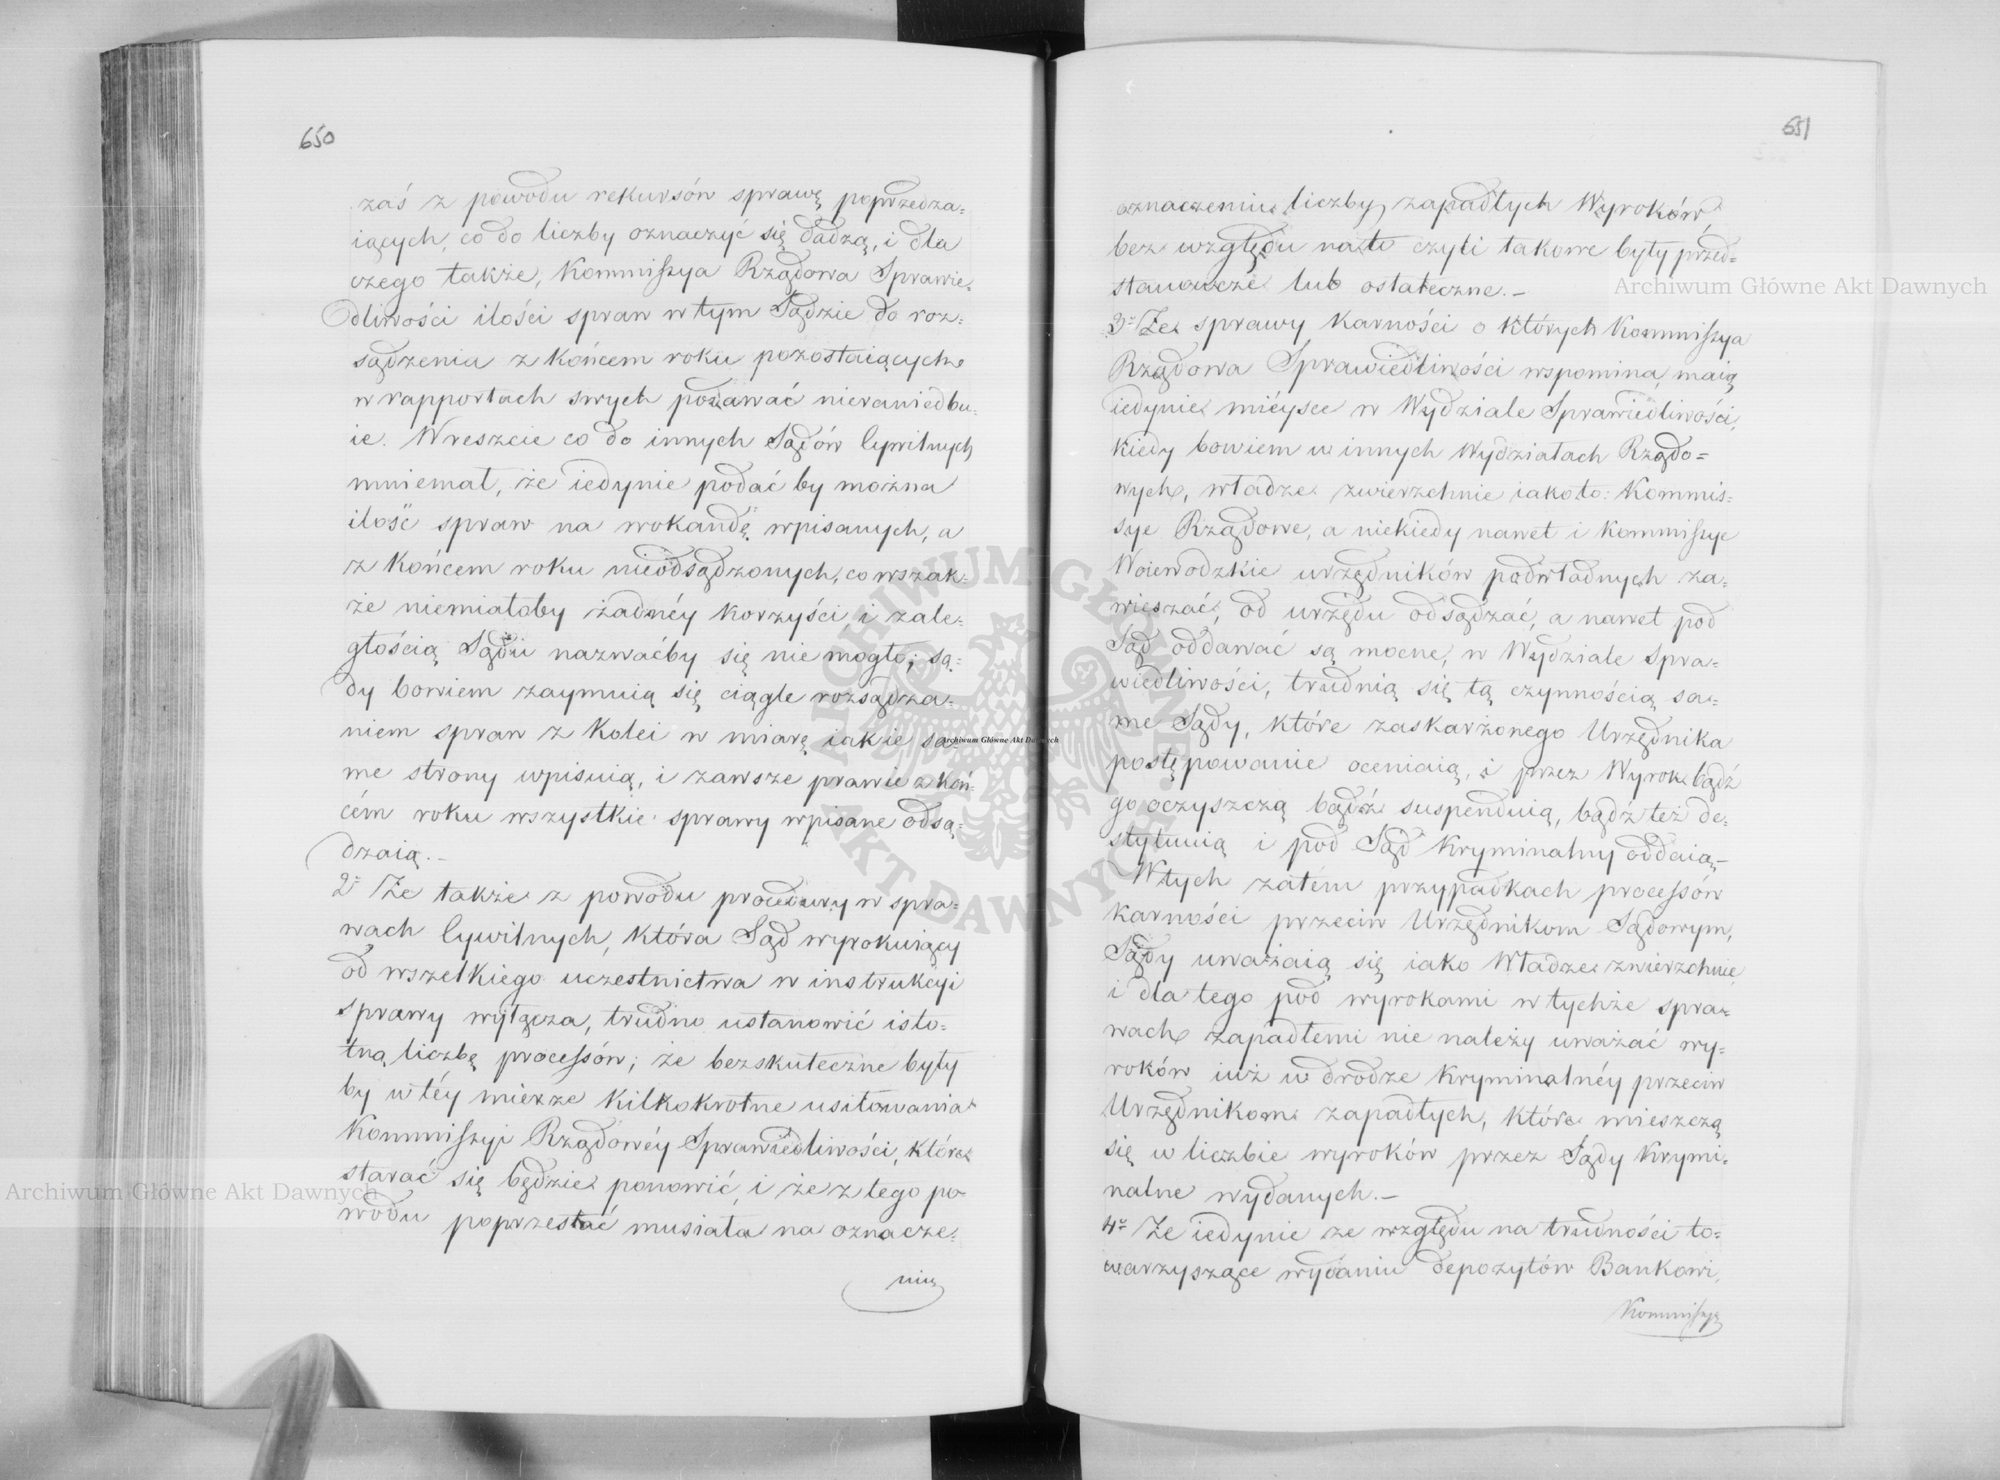 650
zaś z powodu rekursów sprawę poprzedza=
iących, co do liczby oznaczyć się dadzą, i dla
czego także, Kommissya Rządowa Sprawie=
dliwości ilości spraw w tym Sądzie do roz=
sądzenia z końcem roku pozostaiących
w rapportach swych podawać niezaniedbu=
ie. Wreszcie co do innych Sądów Cywilnych
mniemał, że iedynie podać by można
ilość spraw na wokandę wpisanych, a
z końcem roku nieodsądzonych, co wszak=
że niemiałoby żadnéy korzyści i zale=
głością Sądu nazwaćby się nie mogło; są=
dy bowiem zaymuią się ciągle rozsądza=
niem spraw z kolei w miarę iak ie sa=
me strony wpisuią, i zawsze prawie z koń=
cém roku wszystkie sprawy wpisane odsą=
dzaią.—
2º Że także z powodu procedury w spra=
wach Cywilnych, która Sąd wyrokuiący
od wszelkiego uczestnictwa w instrukcyi
sprawy wyłącza, trudno ustanowić isto=
tną liczbę processów; że bezskuteczne były
by w téy mierze kilkokrotne usiłowania
Kommissyi Rządowéy Sprawiedliwości, które
starać się będzie ponowić, i że z tego po=
wodu poprzestać musiała na oznacze=
niu
651
oznaczeniu liczby zapadłych Wyroków,
bez względu na to czyli takowe były przed=
stanowcze lub ostateczne.—
3º Że sprawy karności o których Kommissya
Rządowa Sprawiedliwości wspomina, maią
iedynie mieysce w Wydziale Sprawiedliwości,
kiedy bowiem w innych Wydziałach Rządo=
wych, władze zwierzchnie iako to: Kommis=
sye Rządowe, a niekiedy nawet i Kommissye
Woiewodzkie urzędników podwładnych za=
wieszać, od urzędu odsądzać, a nawet pod
Sąd oddawać są mocne, w Wydziale Spra=
wiedliwości, trudnią się tą czynnością sa=
me Sądy, które zaskarżonego Urzędnika
postępowanie oceniaią, i przez Wyrok bądź
go oczyszczą bądź suspenduią, bądź też de=
stytuuią i pod Sąd Kryminalny oddaią.—
W tych zatém przypadkach processów
karności przeciw Urzędnikom Sądowym,
Sądy uważaią się iako Władze zwierzchnie,
i dla tego pod wyrokami w tychże spra=
wach zapadłemi nie należy uważać wy=
roków iuż w drodze kryminalnéy przeciw
Urzędnikom zapadłych, które mieszczą
się w liczbie wyroków przez Sądy Krymi=
nalne wydanych.—
4º Że iedynie ze względu na trudności to=
warzyszące wydaniu depozytów Bankowi,
Kommissya
Archiwum Główne Akt Dawnych
Archiwum Główne Akt Dawnych
Archiwum Główne Akt Dawnych
ARCHIWUM GŁÓWNE
AKT DAWNYCH